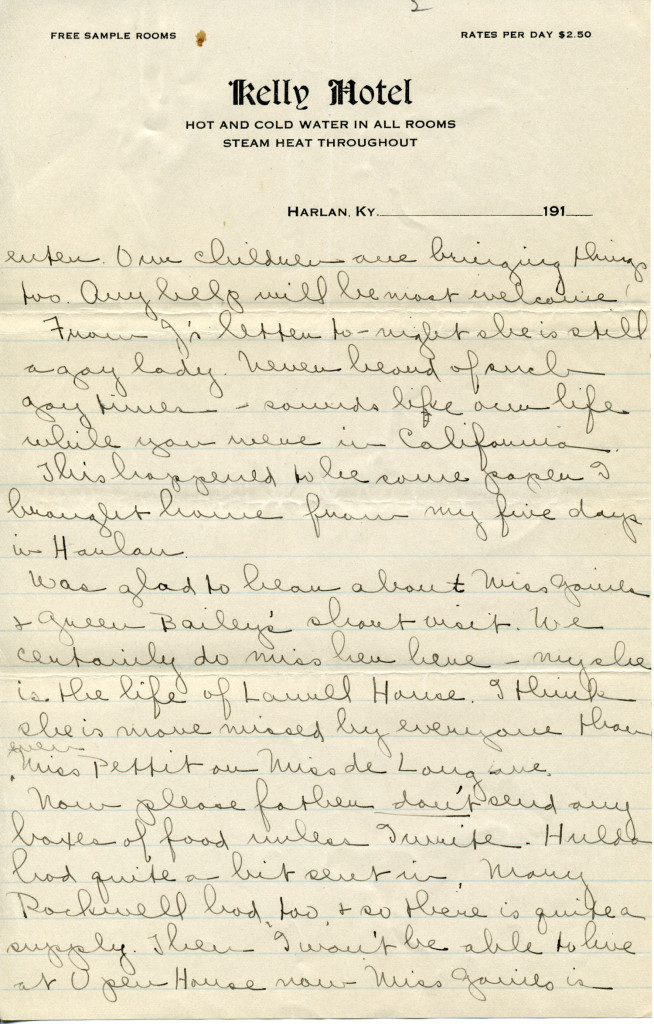 2
FREE SAMPLE ROOMS
RATES PER DAY $2.50
Kelly Hotel
HOT AND COLD WATER IN ALL ROOMS
STEAM HEAT THROUGHOUT
HARLAN, KY. 191
enter. Our children are bringing things
too. Any help will be most welcome!
From J's letter to-night she is still
a gay lady. Never heard of such
gay times - sounds like our life
while you were in California.
This happened to be some paper I
brought home from my five days
in Harlan.
Was glad to hear about Miss Gaines
& Queen Bailey's short visit. We
certainly do miss her here - my she
is the life of Laurell House. I think
she is more missed by everyone than
even
Miss Pettit or Miss de Long are.
Now please father don't send any
boxes of food unless I write. Hulda
had quite a bit sent in, Mary
Rockwell had, too, & so there is quite a
supply. Then I won't be able to live
at Open House now Miss Gaines is